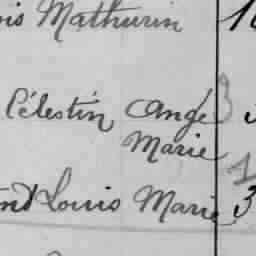 is Mathurin 1
Célestin Ange 3
Marie 1
nd Louis Marie 3